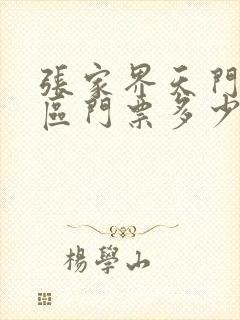 張家界天門
區門票多少
楊學山